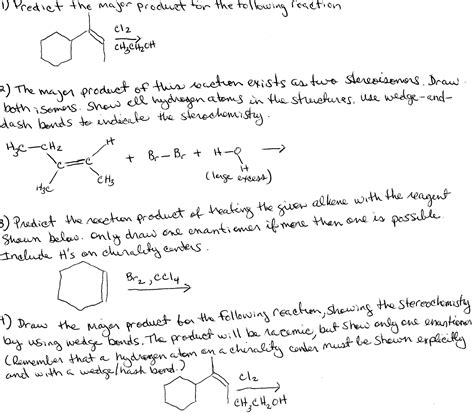 1) Predict the major product for the following reaction
Cl2
CH3CH2OH
2) The major product of this reaction exists as two stereoisomers. Draw
both isomers. Show all hydrogen atoms in the structures. Use wedge-and-
dash bonds to indicate the sterochemistry.
H3C-CH2 H
C=C + Br-Br + H-O →
H3C CH3 H
(large excess)
3) Predict the reaction product of treating the given alkene with the reagent
shown below. Only draw one enantiomer if more than one is possible.
Include H's on chirality centers.
Br2, CCl4
4) Draw the major product for the following reaction, showing the stereochemistry
by using wedge bonds. The product will be racemic, but show only one enantiomer
(Remember that a hydrogen atom on a chirality center must be shown explicitly
and with a wedge/hash bond.)
Cl2
CH3CH2OH